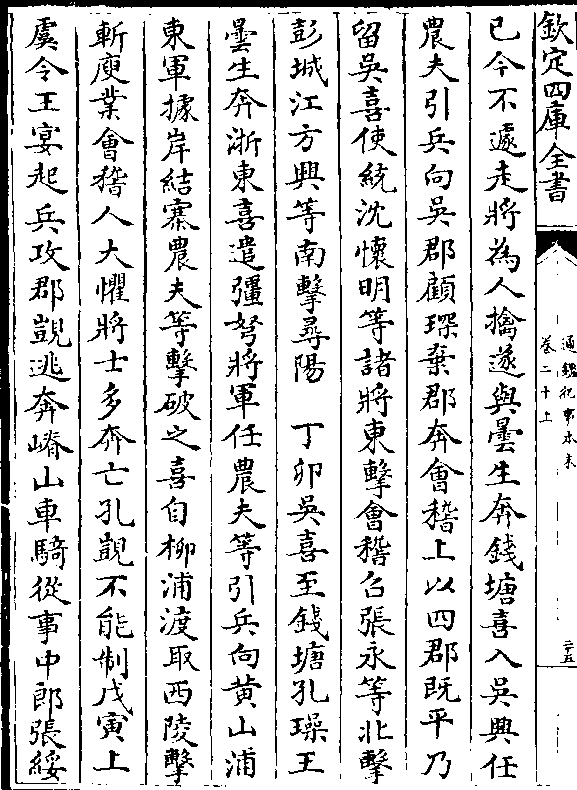 欽定四庫全書
通鑑紀事本末
卷二十上
二十五
已今不遽走將為人擒遂與曇生奔錢塘喜入吳興任
農夫引兵向吳郡顧琛棄郡奔會稽上以四郡既平乃
留吳喜使統沈懷明等諸將東擊會稽召張永等北擊
彭城江方興等南擊尋陽　丁卯吳喜至錢塘孔璪王
曇生奔浙東喜遣彊弩將軍任農夫等引兵向黄山浦
東軍據岸結寨農夫等擊破之喜自柳浦渡取西陵擊
斬庾業會稽人大懼將士多奔亡孔覬不能制戊寅上
虞令王宴起兵攻郡覬逃奔嵴山車騎從事中郎張綏